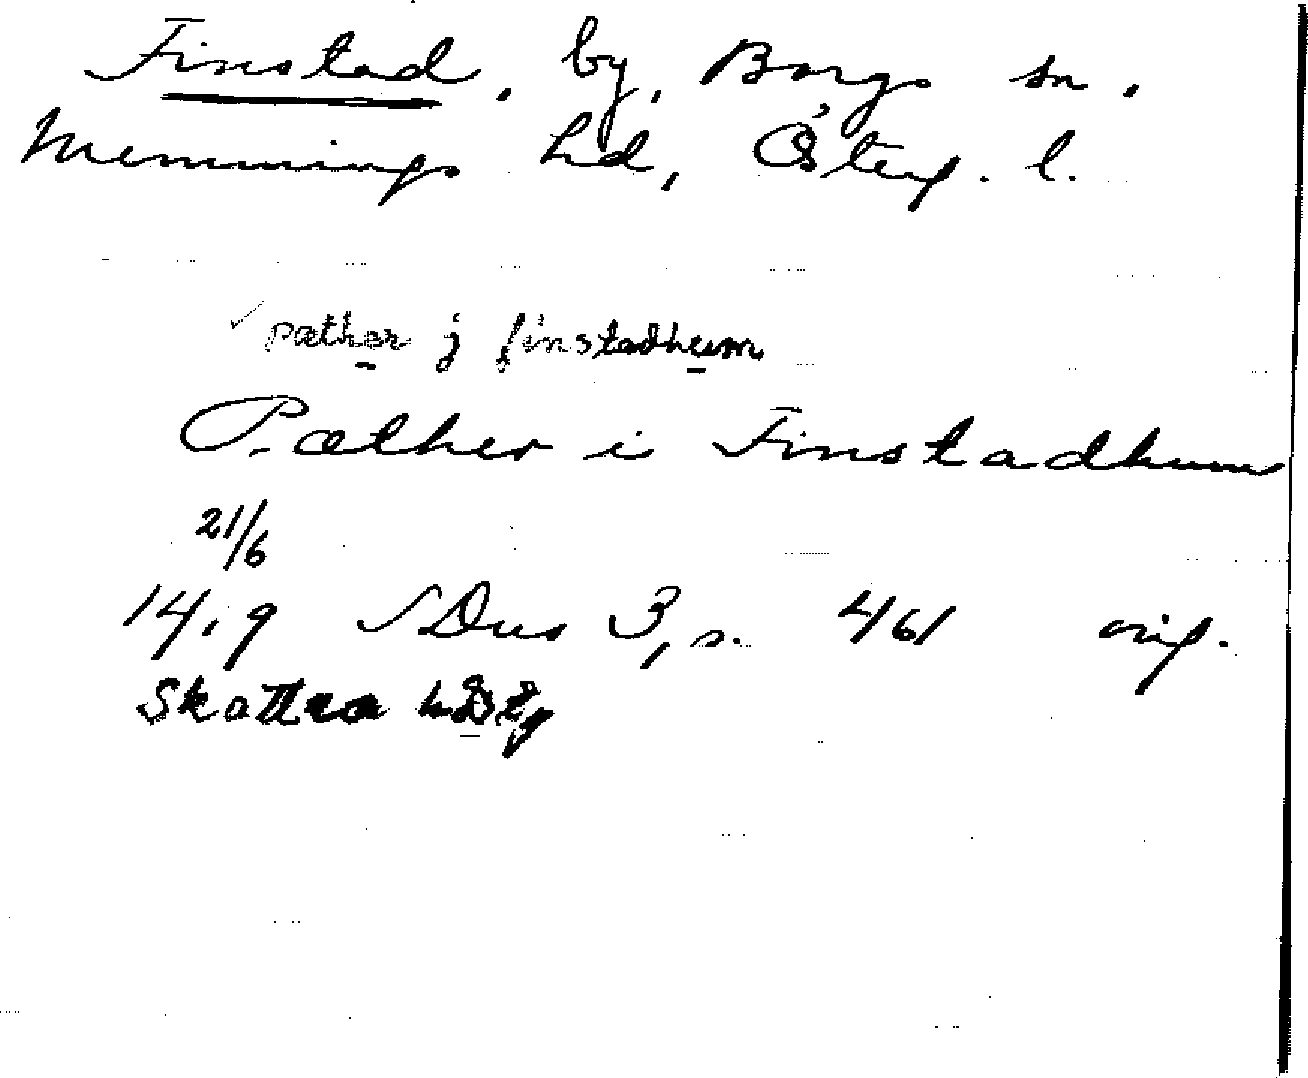 Finstad, by, Borgs sn.
Memmings hd, Österg. l.
pæther j finstadhum
Pæther i Finstadhum
21/6
1419 SDns 3, s. 461 orig.
Skattra